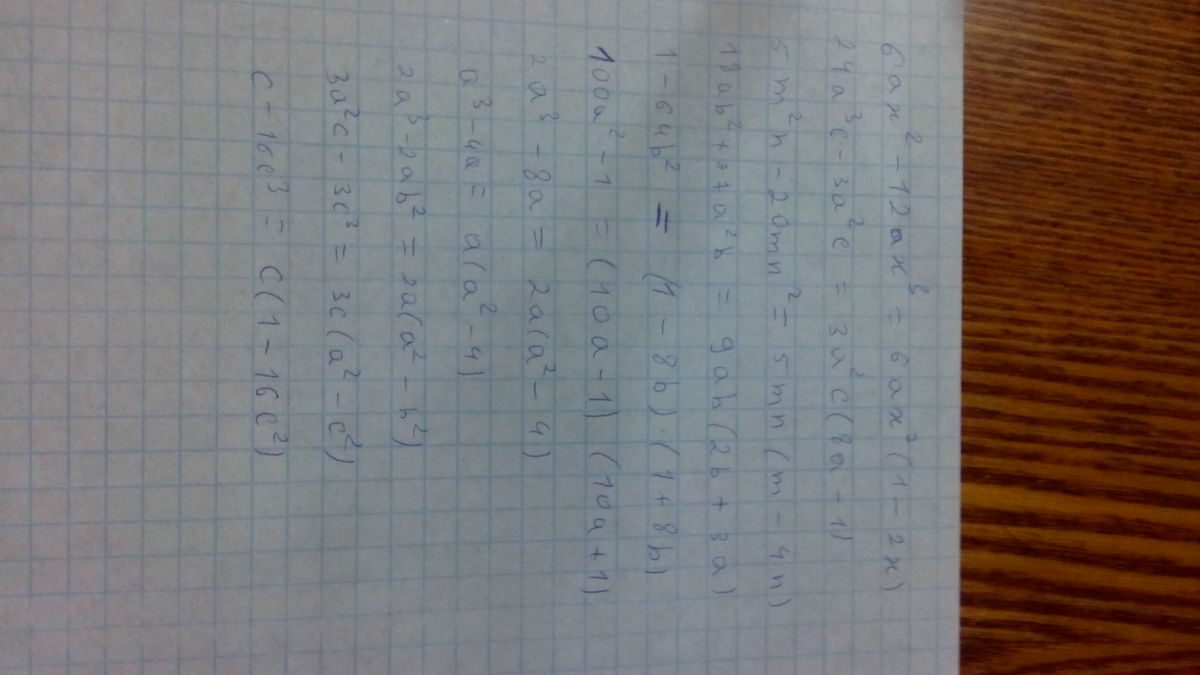 6ax² - 12ax³ = 6ax²(1 - 2x)
24a³c - 3a²c = 3a²c(8a - 1)
5m²n - 20mn² = 5mn(m - 4n)
18ab² + 27a²b = 9ab(2b + 3a)
1 - 64b² = (1 - 8b)·(1 + 8b)
100a² - 1 = (10a - 1)(10a + 1)
2a³ - 8a = 2a(a² - 4)
a³ - 4a = a(a² - 4)
2a³ - 2ab² = 2a(a² - b²)
3a²c - 3c³ = 3c(a² - c²)
c - 16c³ = c(1 - 16c²)